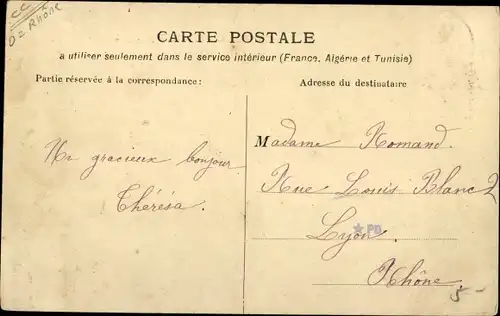 CC
02 Rhône
CARTE POSTALE
a utiliser seulement dans le service intérieur (France, Algérie et Tunisie)
Partie réservée à la correspondance:
Adresse du destinataire
Un gracieux bonjour
Thérésa.
Madame Romand.
Rue Louis Blanc 2
Lyon.
★PD
Rhône.
5-